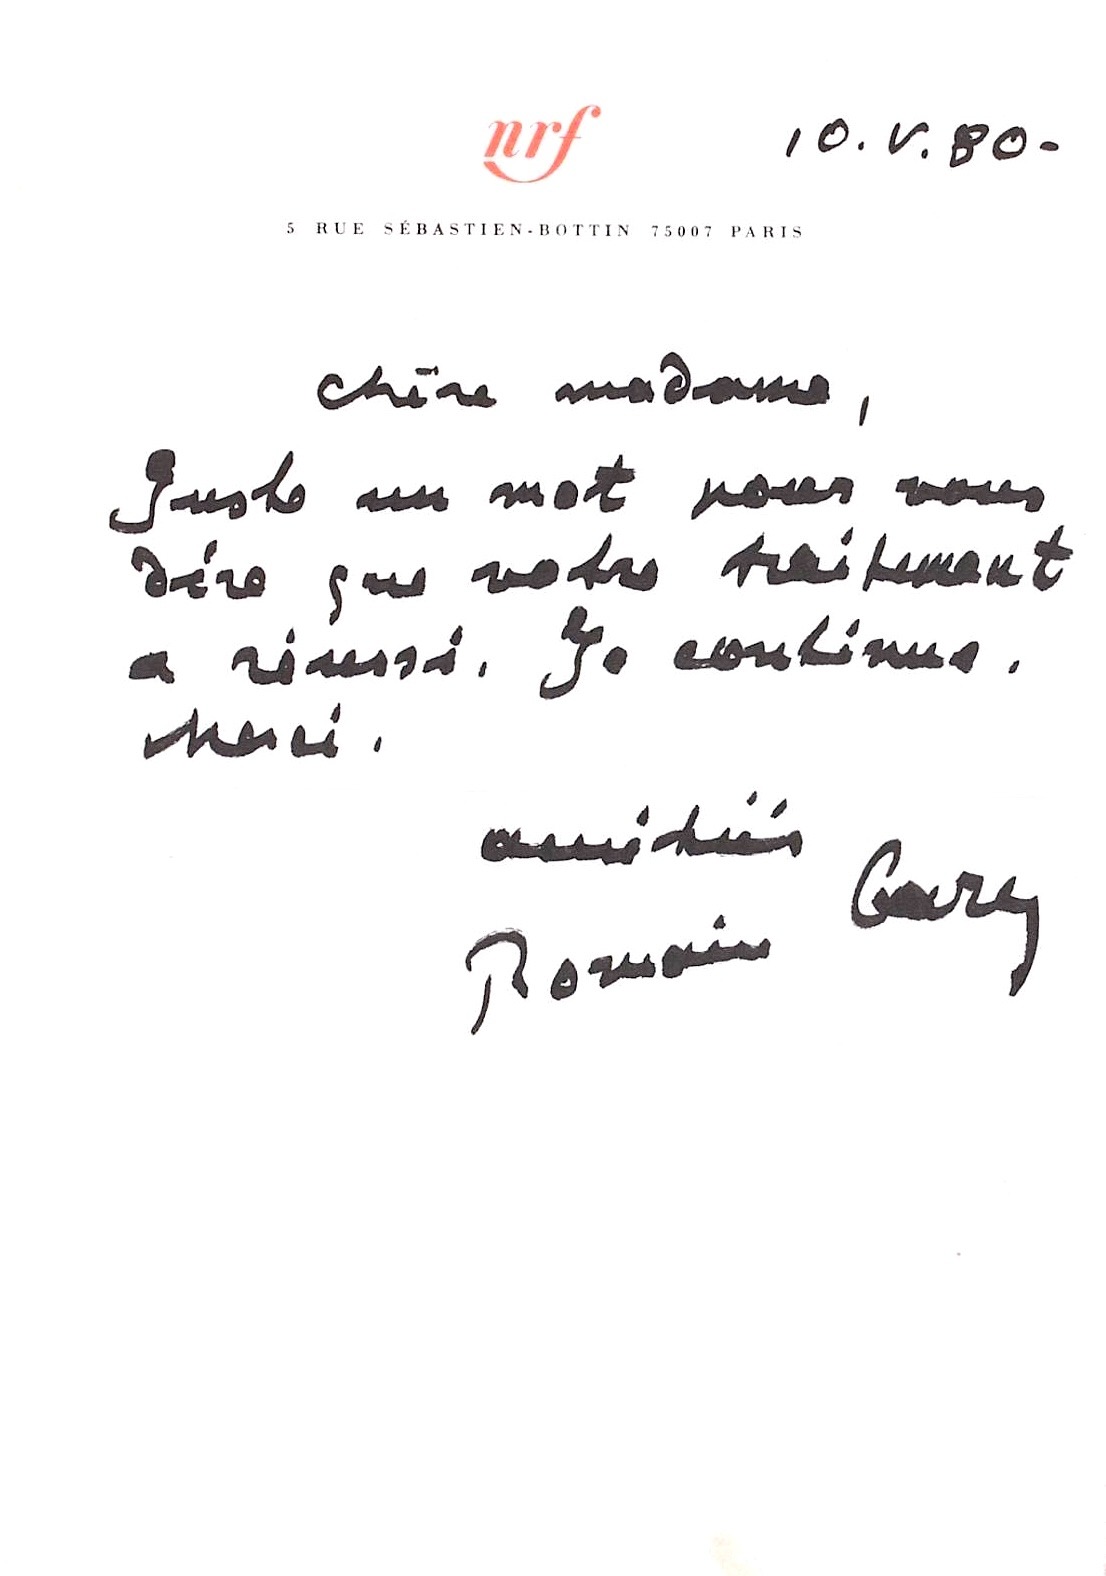 nrf
10.V.80-
5 RUE SÉBASTIEN-BOTTIN 75007 PARIS
Chère madame,
Juste un mot pour vous
dire que votre traitement
a réussi. Je continue.
Merci.
amitiés
Romain Gary